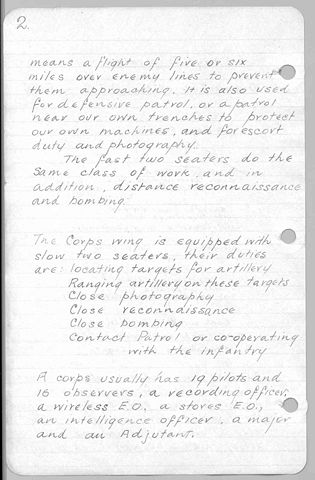 2.
means a flight of five or six
miles over enemy lines to prevent
them approaching. It is also used
for defensive patrol, or a patrol
near our own trenches to protect
our own machines, and for escort
duty and photography.
The fast two seaters do the
same class of work, and in
addition, distance reconnaissance
and bombing.
The Corps wing is equipped with
slow two seaters, their duties
are: locating targets for artillery
Ranging artillery on these targets
Close photography
Close reconnaissance
Close bombing
Contact Patrol or co-operating
with the infantry
A corps usually has 19 pilots and
16 observers, a recording officer,
a wireless E.O., a stores E.O.,
an intelligence officer, a major
and an Adjutant.